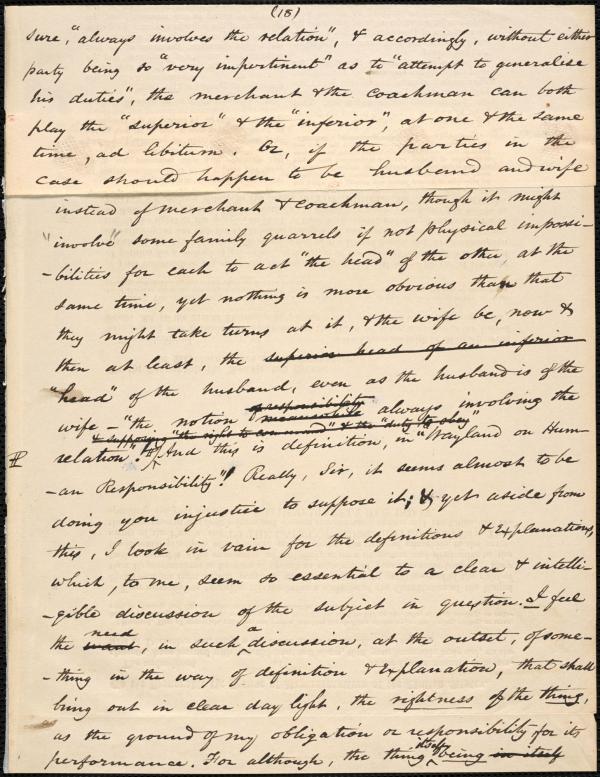 (18)
sure, "always involves the relation", & accordingly, without either
party being so "very impertinent" as to "attempt to generalise
his duties", the merchant & the coachman can both
play the "superior" & the "inferior", at one & the same
time, ad libitum. Or, if the parties in the
case should happen to be husband and wife
instead of merchant & coachman, though it might
"involve" some family quarrels if not physical impossi-
-bilities for each to act "the head" of the other, at the
same time, yet nothing is more obvious than that
they might take turns at it, & the wife be, now &
then at least, the superior head of an inferior
"head" of the husband, even as the husband is of the
of responsibility
wife – "the notion measurable always involving the
& supposing "the right to command" & the "duty to obey"
relation". And this is definition, in "Wayland on Hum-
-an Responsibility"! Really, Sir, it seems almost to be
doing you injustice to suppose it; & yet aside from
this, I look in vain for the definitions & Explanations,
which, to me, seem so essential to a clear & intelli-
-gible discussion of the subject in question. I feel
need
the want, in such a discussion, at the outset, of some-
-thing in the way of definition & Explanation, that shall
bring out in clear day light, the rightness of the thing,
as the ground of my obligation or responsibility for its
itself
performance. For although, the thing being in itself